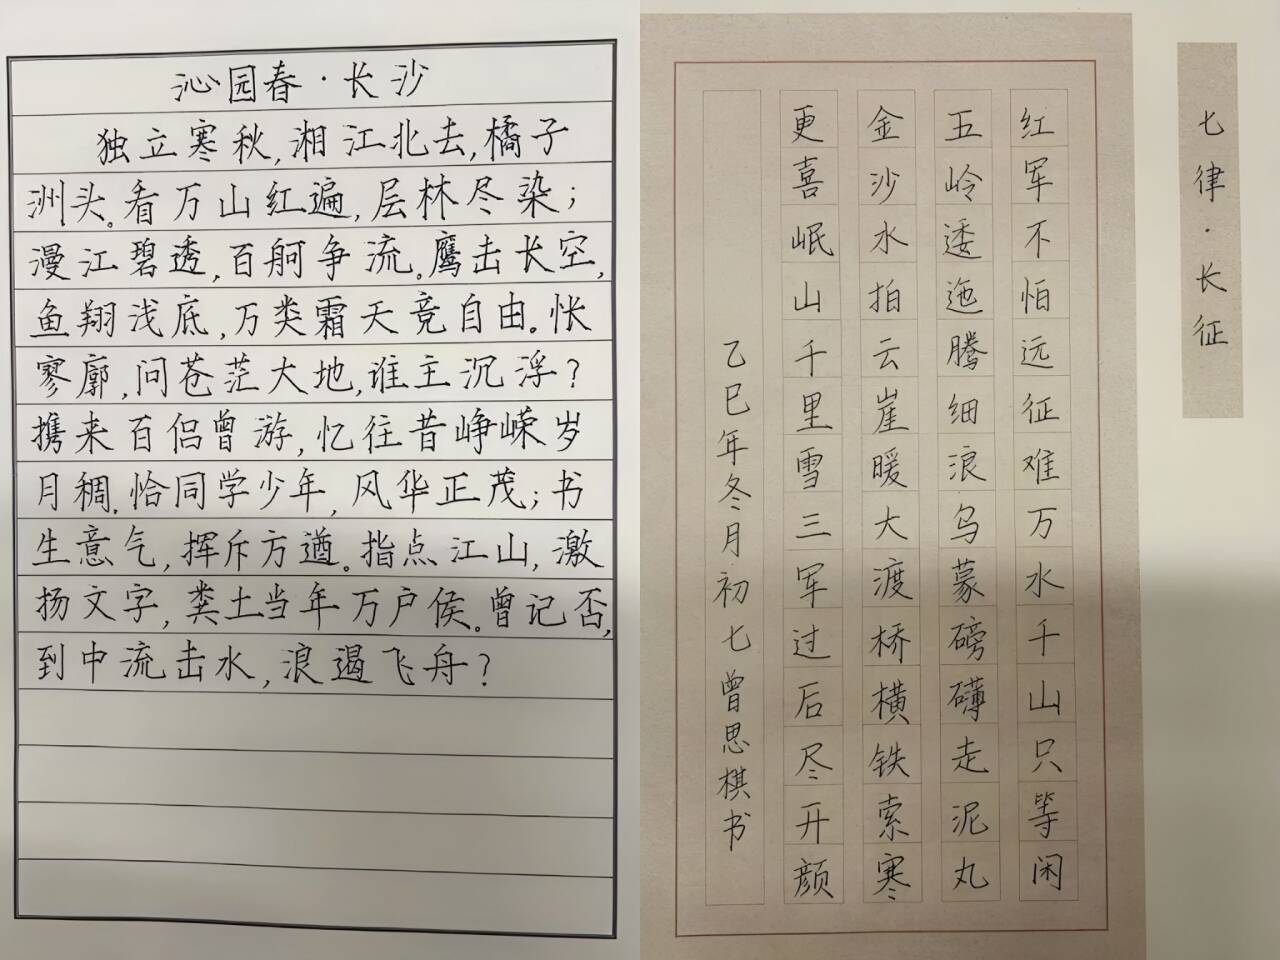 沁园春·长沙
独立寒秋,湘江北去,橘子
洲头。看万山红遍,层林尽染;
漫江碧透,百舸争流。鹰击长空,
鱼翔浅底,万类霜天竞自由。怅
寥廓,问苍茫大地,谁主沉浮?
携来百侣曾游,忆往昔峥嵘岁
月稠。恰同学少年,风华正茂;书
生意气,挥斥方遒。指点江山,激
扬文字,粪土当年万户侯。曾记否,
到中流击水,浪遏飞舟?
七律·长征
红军不怕远征难万水千山只等闲
五岭逶迤腾细浪乌蒙磅礴走泥丸
金沙水拍云崖暖大渡桥横铁索寒
更喜岷山千里雪三军过后尽开颜
乙巳年冬月初七曾思棋书